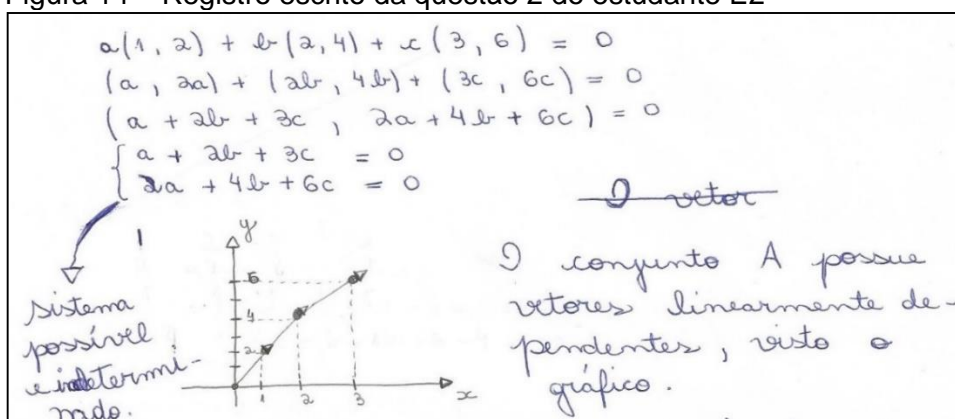 Figura 14 – Registro escrito da questão 2 do estudante E2
a(1, 2) + b(2, 4) + c(3, 6) = 0
(a, 2a) + (2b, 4b) + (3c, 6c) = 0
(a + 2b + 3c, 2a + 4b + 6c) = 0
a + 2b + 3c = 0
2a + 4b + 6c = 0
O vetor
sistema
possível
e indetermi-
nado.
y
6
4
2
1 2 3 x
O conjunto A possue
vetores linearmente de-
pendentes, visto o
gráfico.